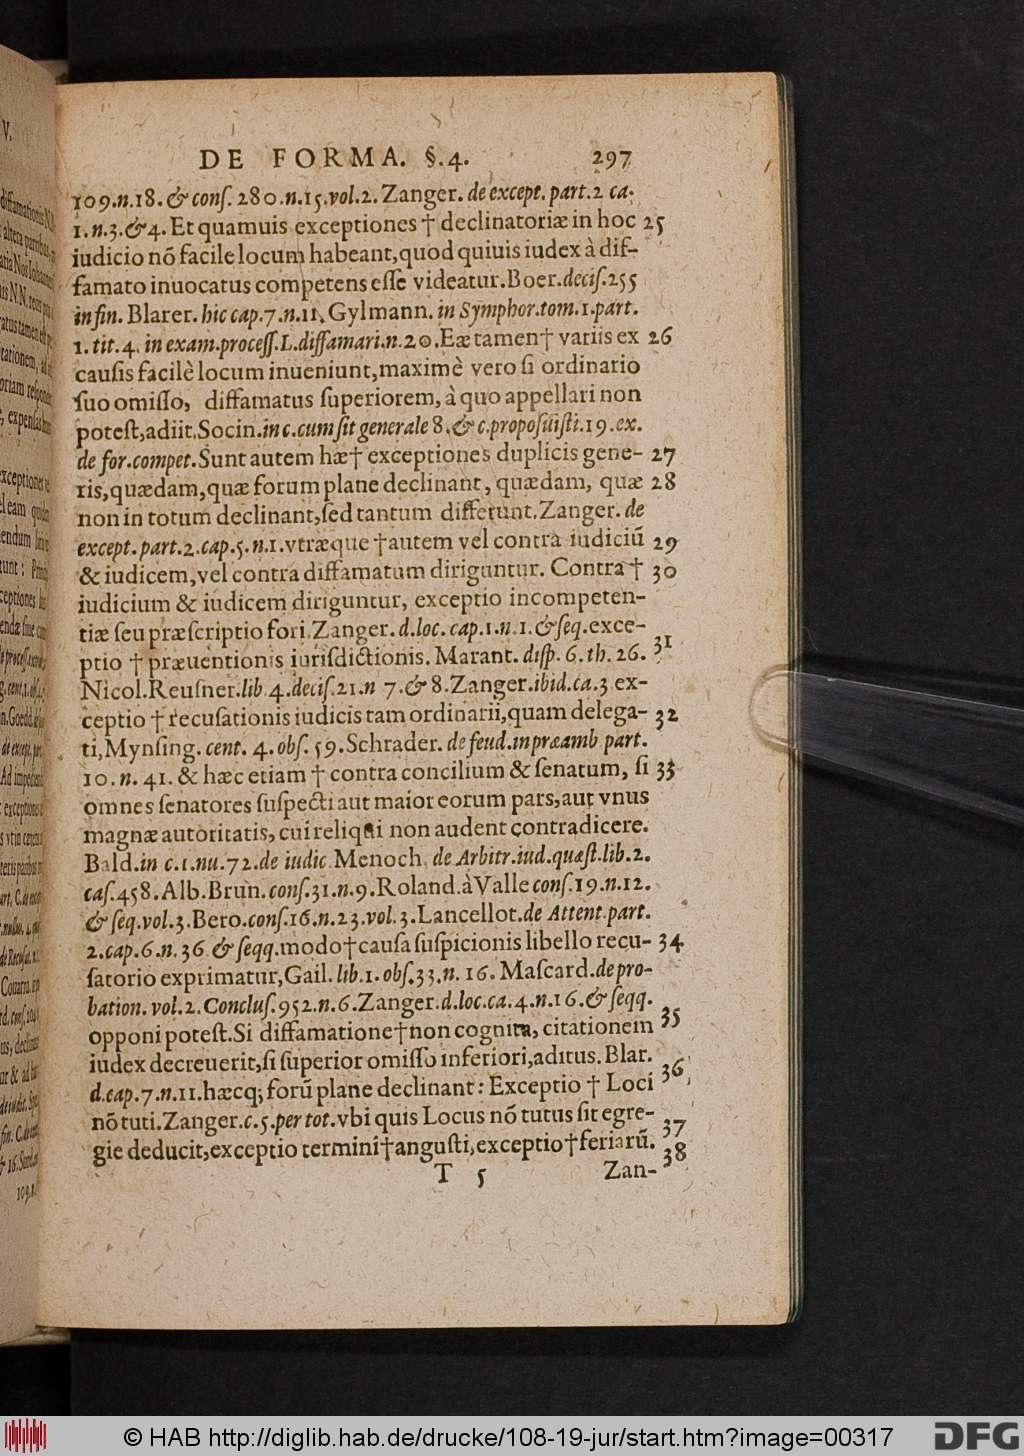 DE FORMA. §.4. 297
109.n.18. & conſ. 280.n.15.vol.2. Zanger. de except. part.2 ca.
1.n.3.&4. Et quamuis exceptiones † declinatoriæ in hoc 25
iudicio nõ facile locum habeant, quod quiuis iudex à dif-
famato inuocatus competens eſſe videatur. Boer. deciſ.255
in fin. Blarer. hic cap.7.n.11. Gylmann. in Symphor.tom.1.part.
1. tit.4. in exam.proceſſ.L.diffamari.n.20. Eæ tamen† variis ex 26
cauſis facilè locum inueniunt, maximè vero ſi ordinario
ſuo omiſſo, diffamatus ſuperiorem, à quo appellari non
poteſt, adiit. Socin. in c.cum ſit generale 8. & c.propoſuiſti.19.ex.
de for.compet. Sunt autem hæ† exceptiones duplicis gene- 27
ris, quædam, quæ forum plane declinant, quædam, quæ 28
non in totum declinant, ſed tantum differunt. Zanger. de
except. part.2.cap.5.n.1. vtræque †autem vel contra iudiciũ 29
& iudicem, vel contra diffamatum diriguntur. Contra † 30
iudicium & iudicem diriguntur, exceptio incompeten-
tiæ ſeu præſcriptio fori. Zanger. d.loc. cap.1.n.1.&ſeq. exce-
ptio † præuentionis iuriſdictionis. Marant. diſp. 6. th. 26. 31
Nicol. Reuſner. lib 4. deciſ.21.n 7.& 8. Zanger. ibid.ca.3 ex-
ceptio † recuſationis iudicis tam ordinarii, quam delega- 32
ti, Mynſing. cent. 4. obſ. 59. Schrader. de feud. in præamb part.
10. n. 41. & hæc etiam † contra concilium & ſenatum, ſi 33
omnes ſenatores ſuſpecti aut maior eorum pars, aut vnus
magnæ autoritatis, cui reliqui non audent contradicere.
Bald. in c.1.nu.72.de iudic Menoch. de Arbitr.iud.quæſt.lib.2.
caſ.458. Alb. Brun. conſ.31.n.9. Roland. à Valle conſ.19.n.12.
& ſeq.vol.3. Bero. conſ.16.n.23.vol.3. Lancellot. de Attent.part.
2.cap.6.n.36 & ſeqq. modo† cauſa ſuſpicionis libello recu- 34
ſatorio exprimatur, Gail. lib.1.obſ.33.n. 16. Maſcard. de pro-
bation. vol.2. Concluſ.952.n.6. Zanger. d.loc.ca.4.n.16.& ſeqq.
opponi poteſt. Si diffamatione† non cognita, citationem 35
iudex decreuerit, ſi ſuperior omiſſo inferiori, aditus. Blar.
d.cap.7.n.11. hæcq; forũ plane declinant: Exceptio † Loci 36
nõ tuti. Zanger. c.5.per tot. vbi quis Locus nõ tutus ſit egre-
gie deducit, exceptio termini† anguſti, exceptio† feriarũ. 37
38
T 5 Zan-
© HAB http://diglib.hab.de/drucke/108-19-jur/start.htm?image=00317
DFG